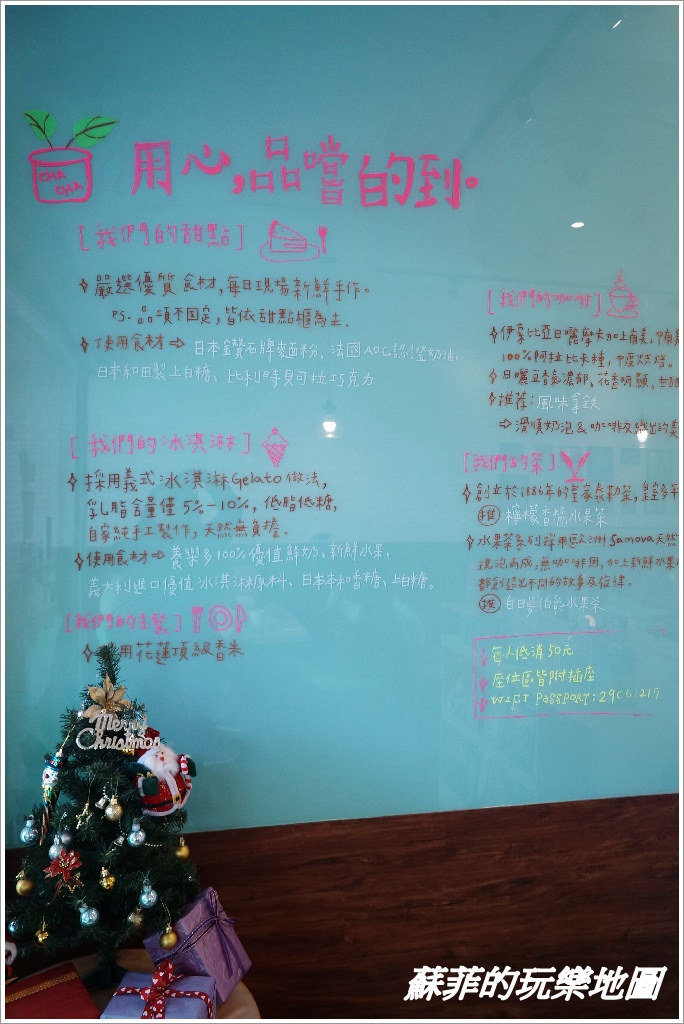 CHA CHA
用心,品嚐的到。
[我們的甜點]
嚴選優質食材,每日現場新鮮手作。
PS. 品項不固定,皆依甜點櫃為主.
使用食材⇒ 日本鑽石牌麵粉、法國AOC認證奶油、
日本和田製上白糖、比利時貝可拉巧克力
[我們的冰淇淋]
採用義式冰淇淋Gelato做法,
乳脂含量僅5%-10%, 低脂低糖,
自家純手工製作, 天然無負擔.
使用食材⇒ 義樂多100%優值鮮奶、新鮮水果、
義大利進口優值冰淇淋原料、日本本和香糖、上白糖。
[我們的主餐]
用花蓮頂級香米
[我們的咖啡]
伊索比亞日曬摩卡加上南美,中南美
100%阿拉比卡種,中度烘焙。
日曬豆香氣濃郁、花香明顯、
推荐:風味拿鐵
⇒ 滑順奶泡&咖啡交織出的美
[我們的茶]
創立於1886年的皇家泰勒茶,皇室
推 檸檬香醬水果茶
水果茶系列採用歐洲Samova天然
浸泡而成,無咖啡因,加上新鮮水果
都創造出不同的故事及旋律。
推 白日夢伯爵水果茶
每人低消50元
座位區皆附插座
WIFI PASSPORT:29061217
Merry
Christmas
蘇菲的玩樂地圖